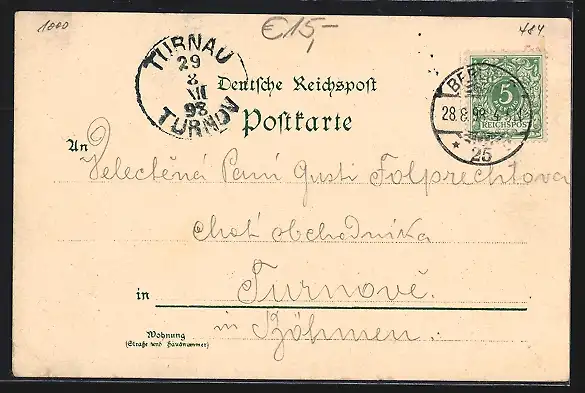 1000
€15,-
484
TURNAU
29
8
VII
98
TURNOV
Deutsche Reichspost
Postkarte
BERLIN
28.8.98.4-5N
* 25
5
REICHSPOST
An
Velectěná Paní Gusti Folprechtova
choť obchodníka
in Turnově.
in Böhmen.
Wohnung
(Straße und Hausnummer)